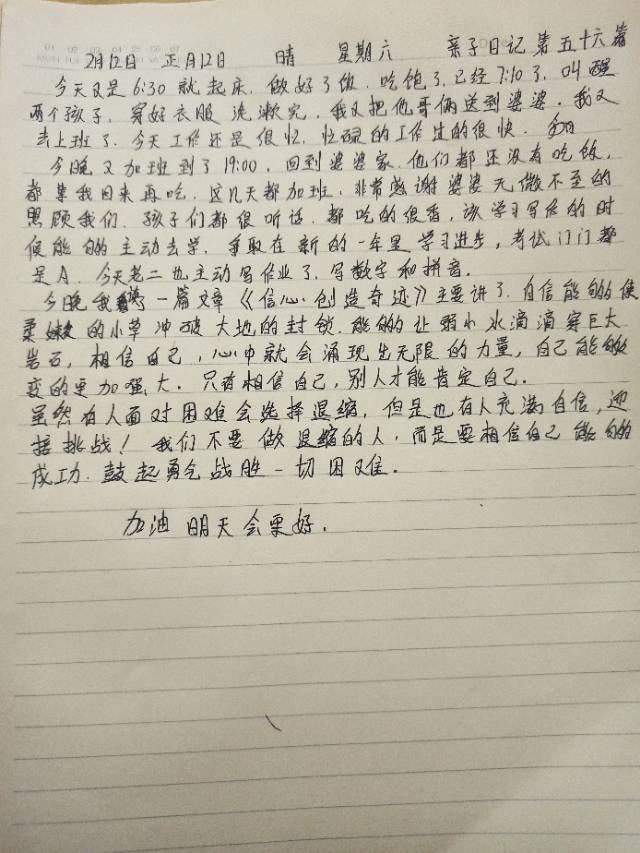 2月12日 正月12日 晴 星期六 亲子日记第五十六篇
今天又是6:30就起床.做好了饭.吃饱了.已经7:10了.叫醒
两个孩子.穿好衣服洗漱完.我又把他哥俩送到婆婆.我又
去上班了.今天工作还是很忙.忙碌的工作过的很快.
今晚又加班到了19:00.回到婆婆家.他们都还没有吃饭.
都等我回来再吃.这几天都加班.非常感谢婆婆无微不至的
照顾我们.孩子们都很听话.都吃的很香,该学习写作的时
候能够的主动去学.争取在新的一年里学习进步,考试门门都
是A.今天老二也主动写作业了.写数字和拼音.
今晚我读了一篇文章《信心创造奇迹》主要讲了.自信能够使
柔嫩的小草冲破大地的封锁.能够让弱小水滴滴穿巨大
岩石,相信自己,心中就会涌现出无限的力量,自己能够
变的更加强大.只有相信自己,别人才能肯定自己.
虽然有人面对困难会选择退缩,但是也有人充满自信,迎
接挑战!我们不要做退缩的人,而是要相信自己能够的
成功.鼓起勇气战胜一切困难.
加油明天会更好.